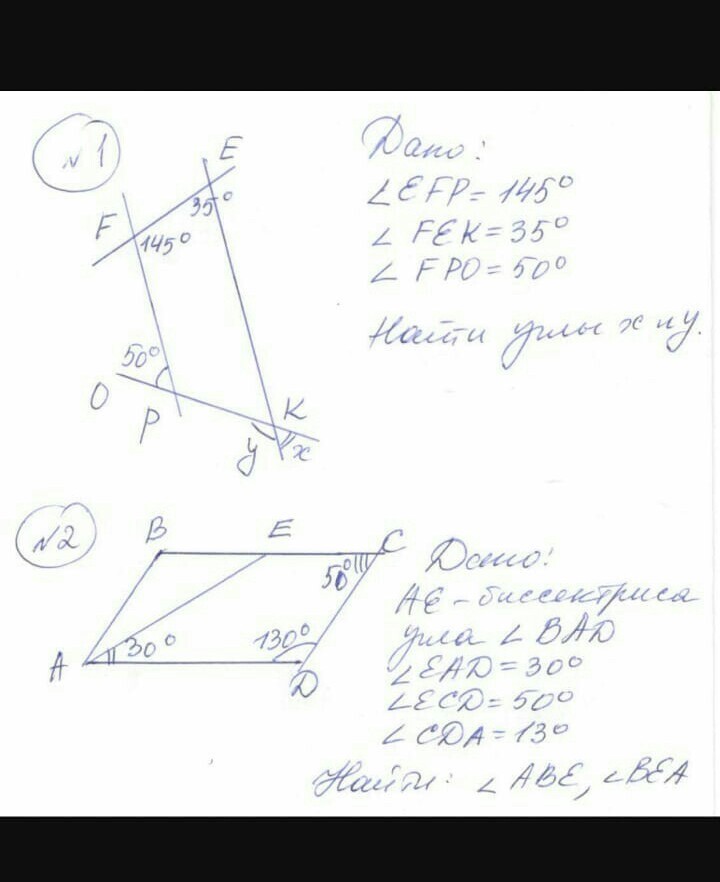 №1
E
F
35°
145°
50°
O
P
K
y
x
Дано:
∠EFP=145°
∠FEK=35°
∠FPO=50°
Найти углы x и y.
№2
B
E
C
50°
30°
130°
A
D
Дано:
AE - биссектриса
угла ∠BAD
∠EAD=30°
∠ECD=50°
∠CDA=13°
Найти: ∠ABE, ∠BEA